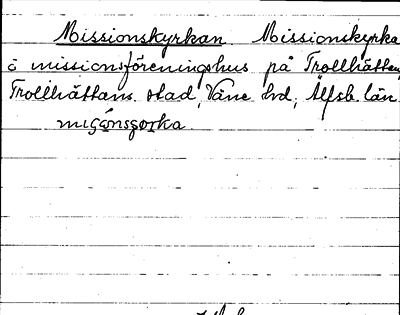 Missionskyrkan Missionskyrka
i missionsföreningshus på Trollhättan,
Trollhättans stad, Väne hd, Älfsb. län.